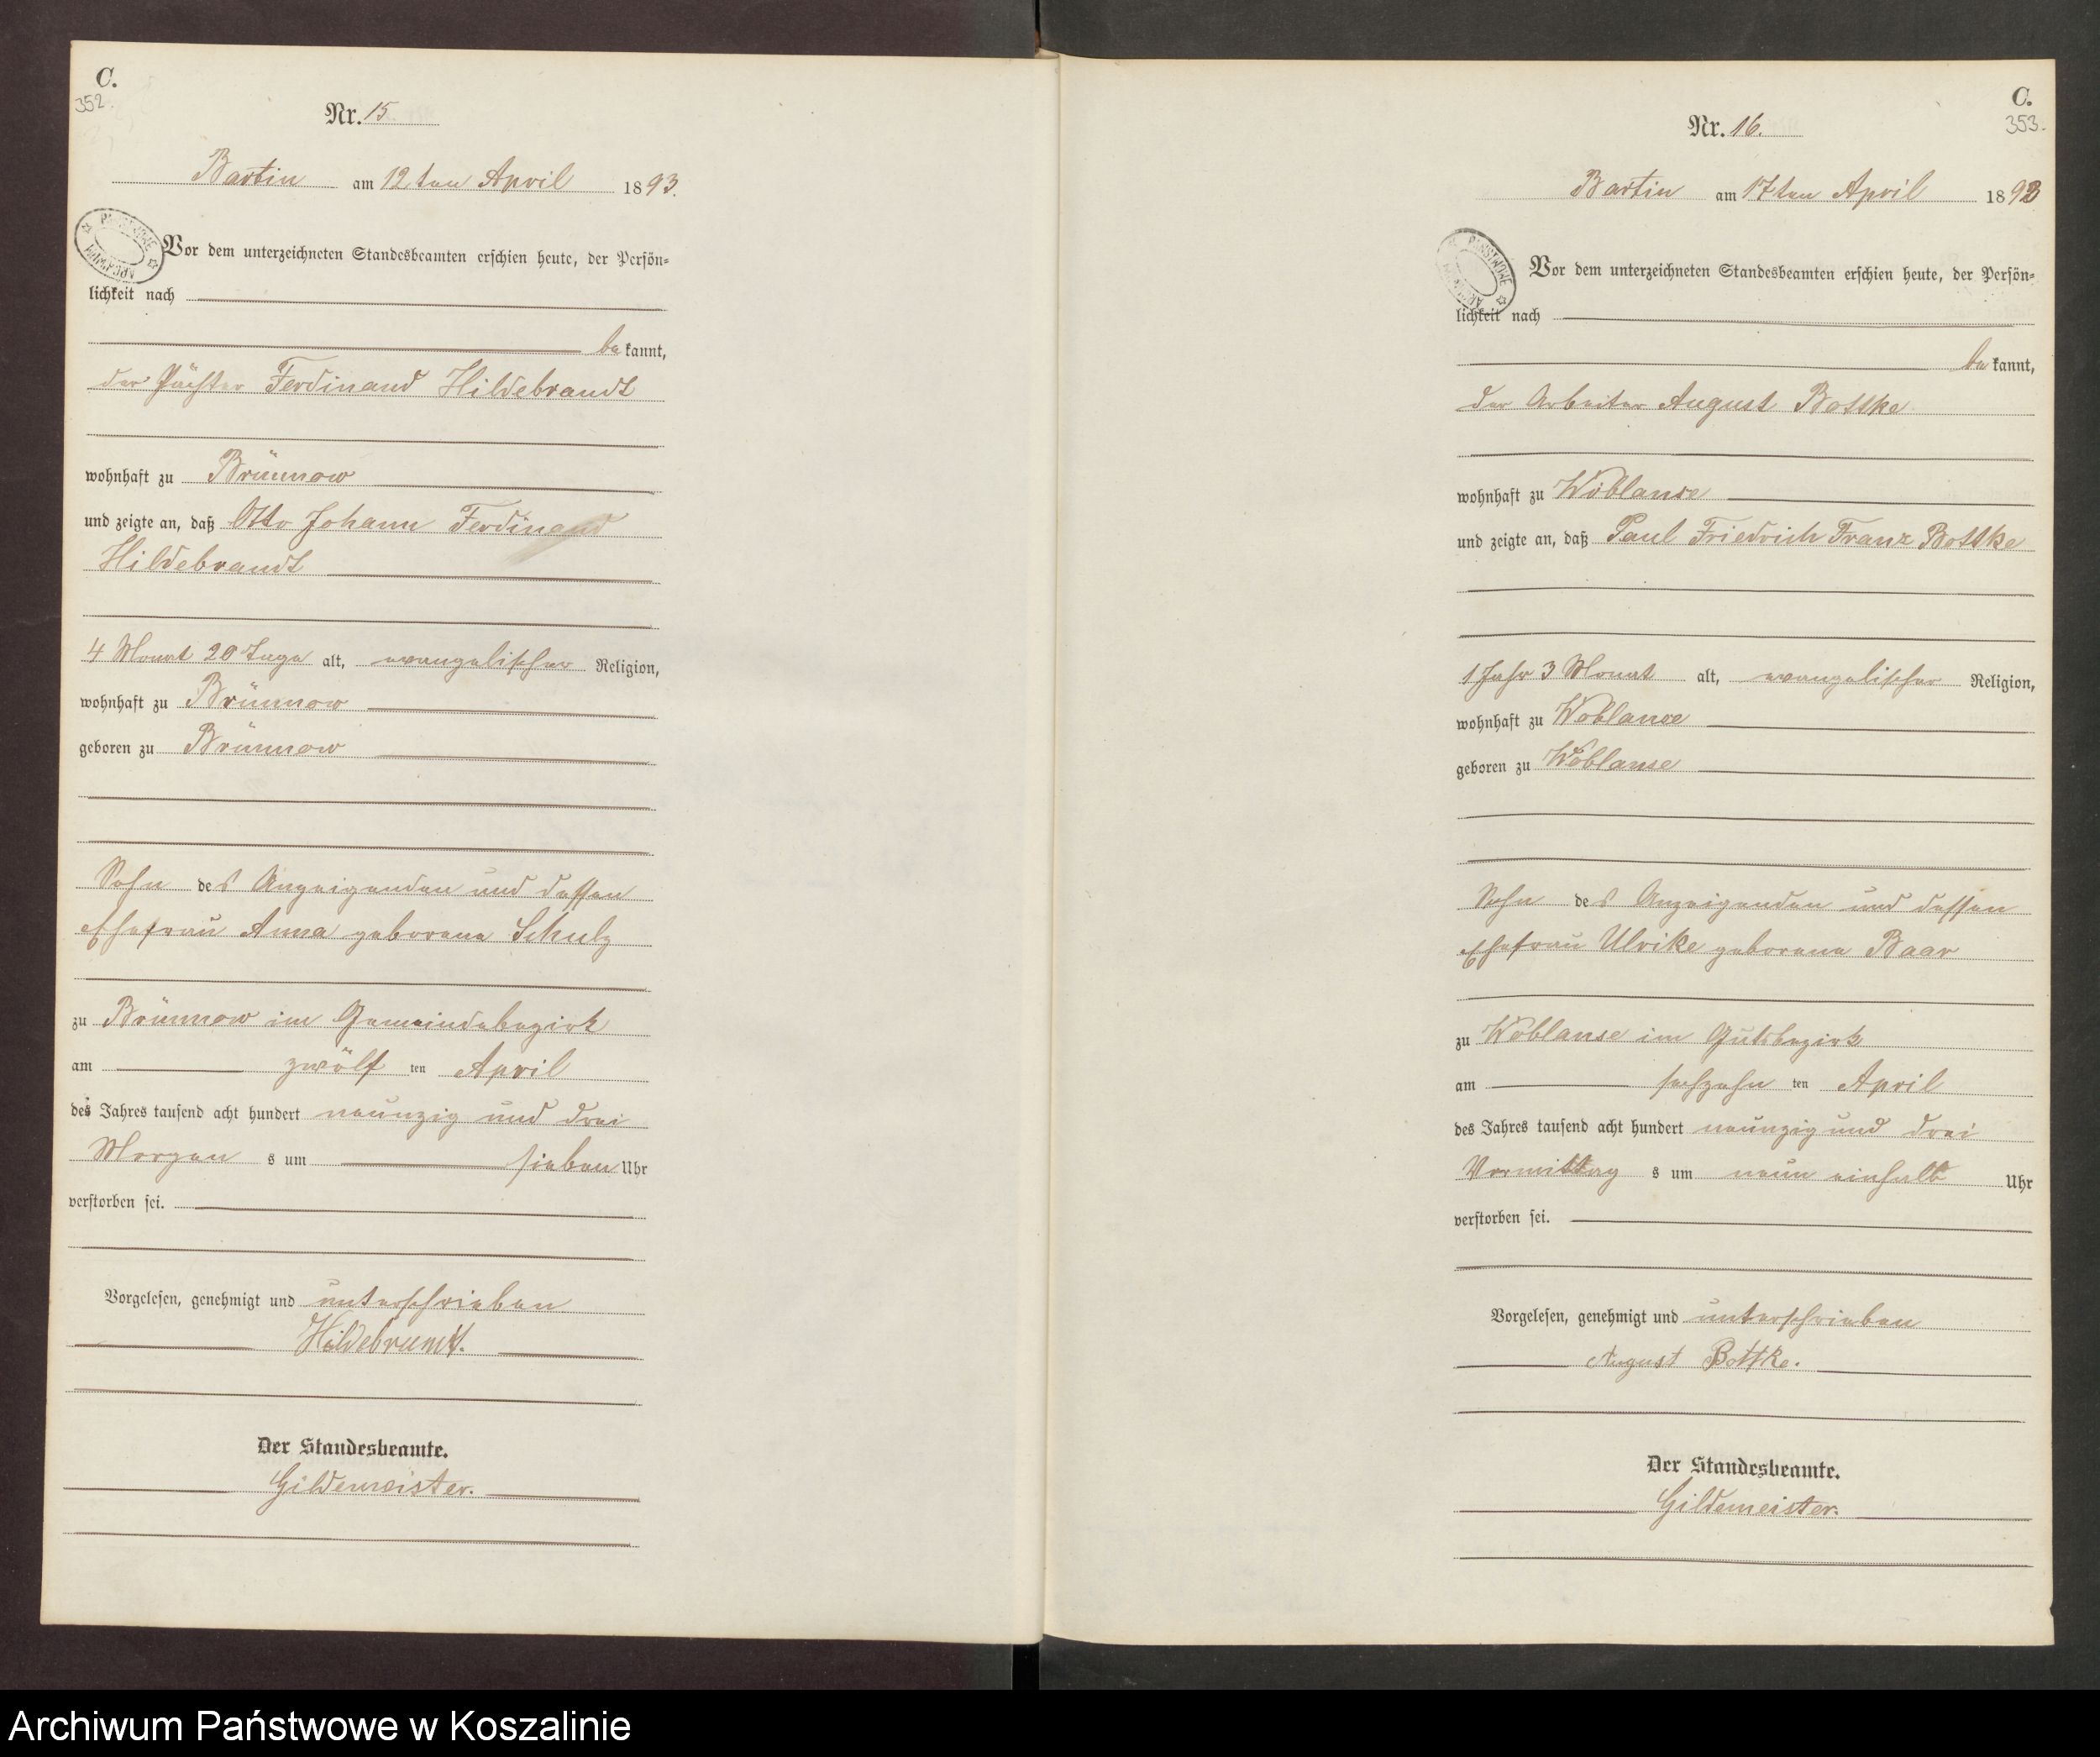 C.
352.
Nr. 15
Bartin am 12ten April 1893.
Vor dem unterzeichneten Standesbeamten erschien heute, der Persön-
lichkeit nach
bekannt,
der Pächter Ferdinand Hildebrandt
wohnhaft zu Brünnow
und zeigte an, daß Otto Johann Ferdinand
Hildebrandt
4 Monat 20 Tage alt, evangelischer Religion,
wohnhaft zu Brünnow
geboren zu Brünnow
Sohn des Anzeigenden und dessen
Ehefrau Anna geborene Schulz
zu Brünnow im Gemeindebezirk
am zwölften April
des Jahres tausend acht hundert neunzig und drei
Morgens um sieben Uhr
verstorben sei.
Vorgelesen, genehmigt und unterschrieben
Hildebrandt.
Der Standesbeamte.
Gildemeister.
C.
353.
Nr. 16.
Bartin am 17ten April 1893
PAŃSTWOWE
Vor dem unterzeichneten Standesbeamten erschien heute, der Persön-
lichkeit nach
bekannt,
der Arbeiter August Bottke
wohnhaft zu Woblanse
und zeigte an, daß Paul Friedrich Franz Bottke
1 Jahr 3 Monat alt, evangelischer Religion,
wohnhaft zu Woblanse
geboren zu Woblanse
Sohn des Anzeigenden und dessen
Ehefrau Ulrike geborene Baar
zu Woblanse im Gutsbezirk
am sechzehnten April
des Jahres tausend acht hundert neunzig und drei
Vormittags um neun einhalb Uhr
verstorben sei.
Vorgelesen, genehmigt und unterschrieben
August Bottke.
Der Standesbeamte.
Gildemeister.
Archiwum Państwowe w Koszalinie